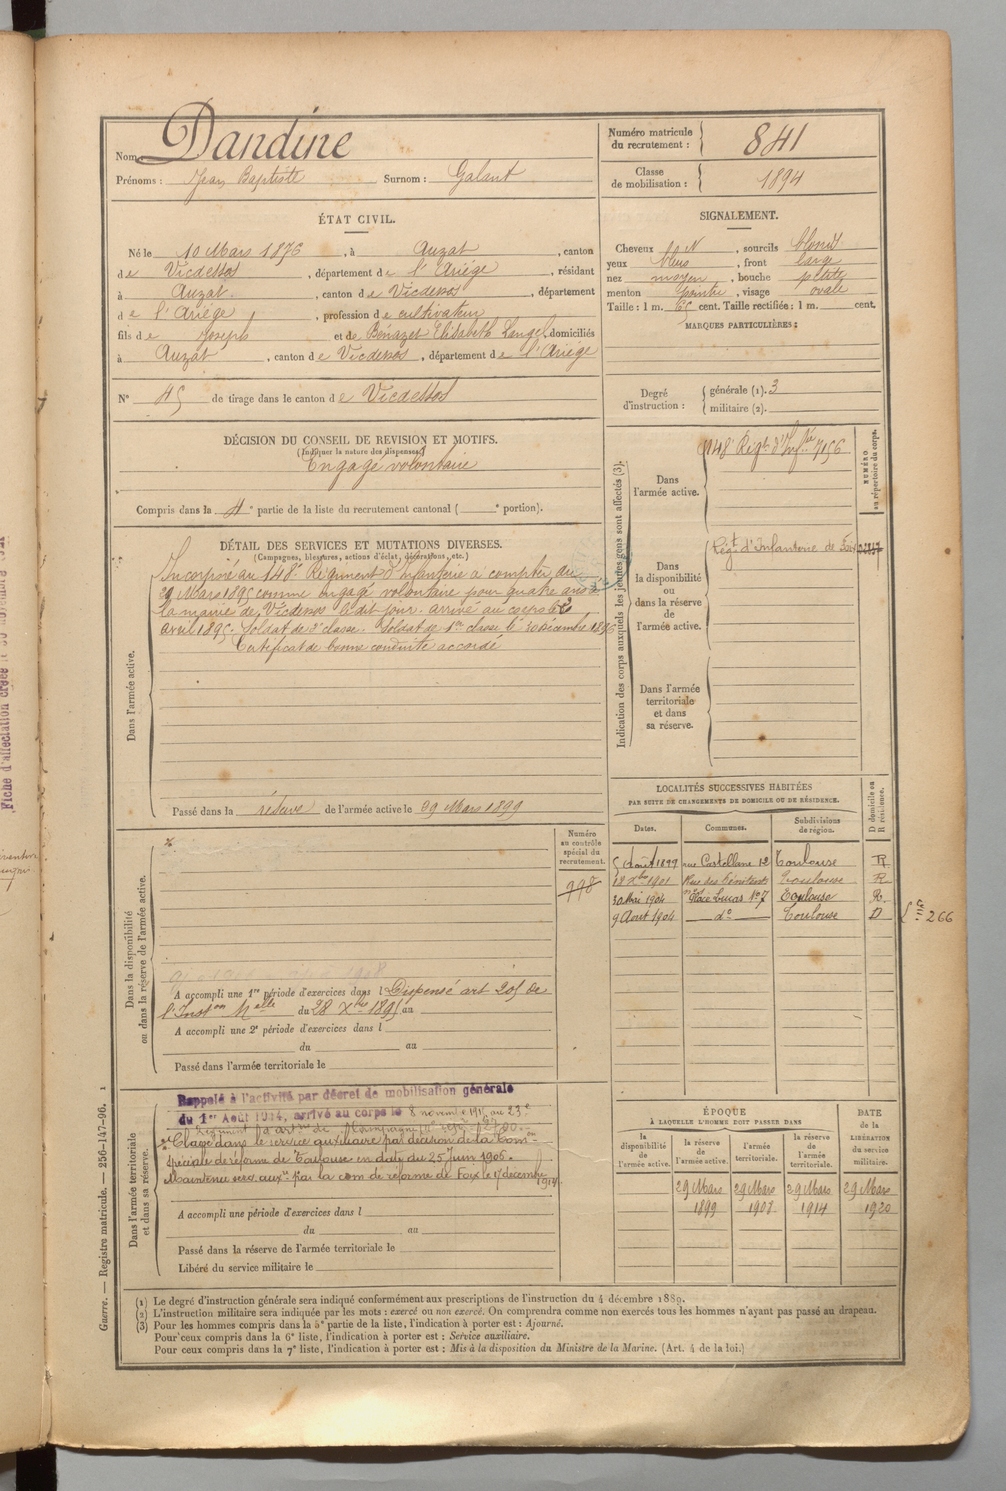 Nom Dandine
Prénoms : Jean Baptiste Surnom : Galant
Numéro matricule du recrutement : 841
Classe de mobilisation : 1894
ÉTAT CIVIL.
Né le 10 Mars 1876, à Auzat, canton
de Vicdessos, département de l'Ariège, résidant
à Auzat, canton de Vicdessos, département
de l'Ariège, profession de cultivateur
fils de Joseph et de Bénazet Elisabeth domiciliés
à Auzat, canton de Vicdessos, département de l'Ariège
N° 45 de tirage dans le canton de Vicdessos
SIGNALEMENT.
Cheveux , sourcils blonds
yeux bleus, front large
nez moyen, bouche petite
menton pointu, visage ovale
Taille : 1 m. 65 cent. Taille rectifiée : 1 m. cent.
MARQUES PARTICULIÈRES :
Degré d'instruction : générale (1). 3
militaire (2).
DÉCISION DU CONSEIL DE REVISION ET MOTIFS.
(Indiquer la nature des dispenses.)
Engagé volontaire
Compris dans la 4e partie de la liste du recrutement cantonal ( e portion).
DÉTAIL DES SERVICES ET MUTATIONS DIVERSES.
(Campagnes, blessures, actions d'éclat, décorations, etc.)
Dans l'armée active.
Incorporé au 148e Régiment d'Infanterie à compter du
29 Mars 1895 comme engagé volontaire pour quatre ans à
la mairie de Vicdessos le dit jour. arrivé au corps le
avril 1895. Soldat de 2e classe. Soldat de 1re classe le 30 Décembre 1895
Certificat de bonne conduite accordé
Passé dans la réserve de l'armée active le 29 Mars 1899
Indication des corps auxquels les jeunes gens sont affectés (3).
NUMÉRO au répertoire du corps.
Dans l'armée active.
148e Régt d'Infie 7156
Dans la disponibilité ou dans la réserve de l'armée active.
Régt d'Infanterie de Foix
Dans l'armée territoriale et dans sa réserve.
LOCALITÉS SUCCESSIVES HABITÉES
PAR SUITE DE CHANGEMENTS DE DOMICILE OU DE RÉSIDENCE.
Dates. Communes. Subdivisions de région. D domicile ou R résidence.
5 Août 1899 rue Castellane 12 Toulouse R
18 Xbre 1901 Rue des Pénitents Toulouse R
30 Mai 1904 Place Lucas No 7 Toulouse R
9 Août 1904 do Toulouse D
266
Dans la disponibilité ou dans la réserve de l'armée active.
Numéro au contrôle spécial du recrutement.
998
A accompli une 1re période d'exercices dans l Dispensé art 205 de
l'Inston Melle du 28 Xbre 1895 au
A accompli une 2e période d'exercices dans l
du au
Passé dans l'armée territoriale le
Dans l'armée territoriale et dans sa réserve.
Rappelé à l'activité par décret de mobilisation générale
du 1er Août 1914, arrivé au corps le 8 novembre 1915 au 23e
Régiment d'artie de Campagne
Classé dans le service auxiliaire par décision de la Comon
spéciale de réforme de Toulouse en date du 25 juin 1906.
Maintenu serv. auxre par la com de réforme de Foix le 17 décembre
1914.
A accompli une période d'exercices dans l
du au
Passé dans la réserve de l'armée territoriale le
Libéré du service militaire le
ÉPOQUE
À LAQUELLE L'HOMME DOIT PASSER DANS
la disponibilité de l'armée active. la réserve de l'armée active. l'armée territoriale. la réserve de l'armée territoriale.
DATE de la LIBÉRATION du service militaire.
29 Mars 29 Mars 29 Mars 29 Mars
1899 1908 1914 1920
(1) Le degré d'instruction générale sera indiqué conformément aux prescriptions de l'instruction du 4 décembre 1889.
(2) L'instruction militaire sera indiquée par les mots : exercé ou non exercé. On comprendra comme non exercés tous les hommes n'ayant pas passé au drapeau.
(3) Pour les hommes compris dans la 5e partie de la liste, l'indication à porter est : Ajourné.
Pour ceux compris dans la 6e liste, l'indication à porter est : Service auxiliaire.
Pour ceux compris dans la 7e liste, l'indication à porter est : Mis à la disposition du Ministre de la Marine. (Art. 4 de la loi.)
Guerre. — Registre matricule. — 256-147-96. 1